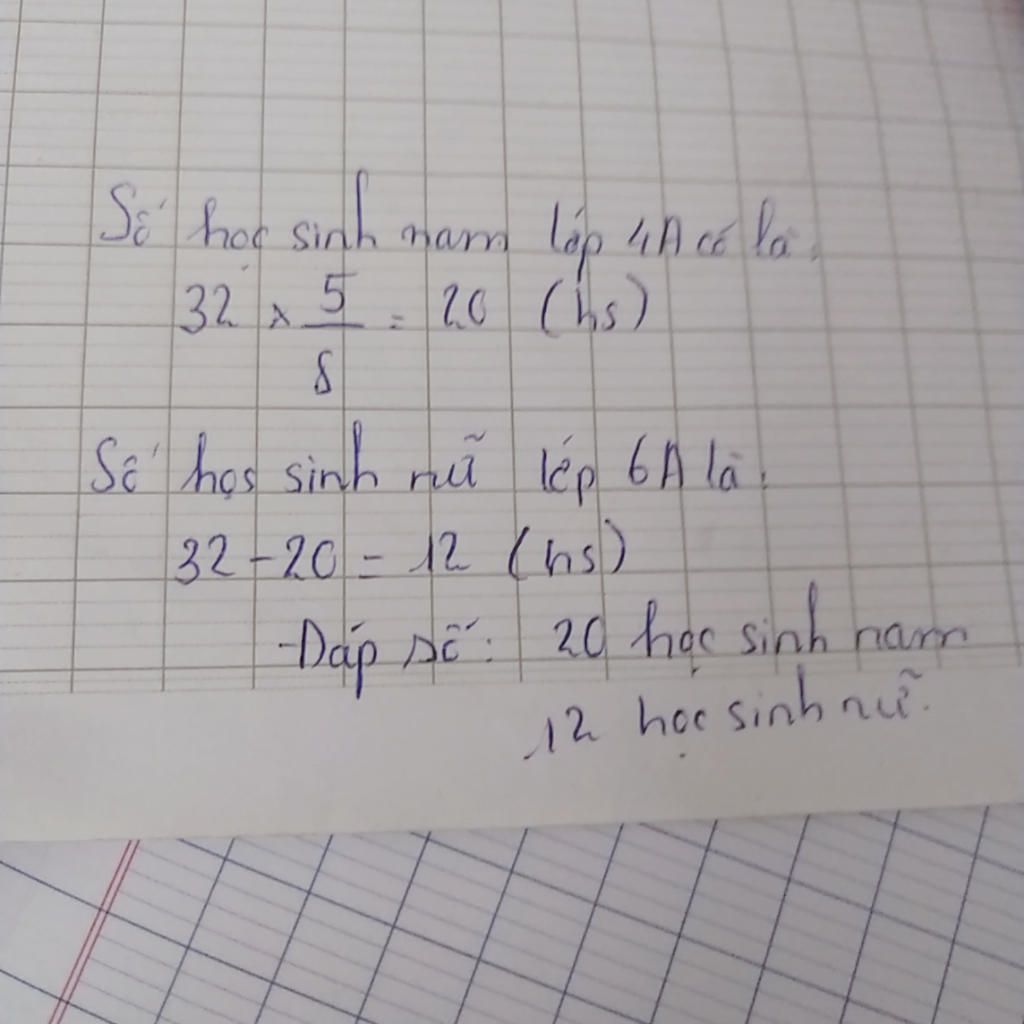 Số học sinh nam lớp 4A có là:
32 × 5/8 = 20 (hs)
Số học sinh nữ lớp 6A là:
32 - 20 = 12 (hs)
Đáp số: 20 học sinh nam
12 học sinh nữ.